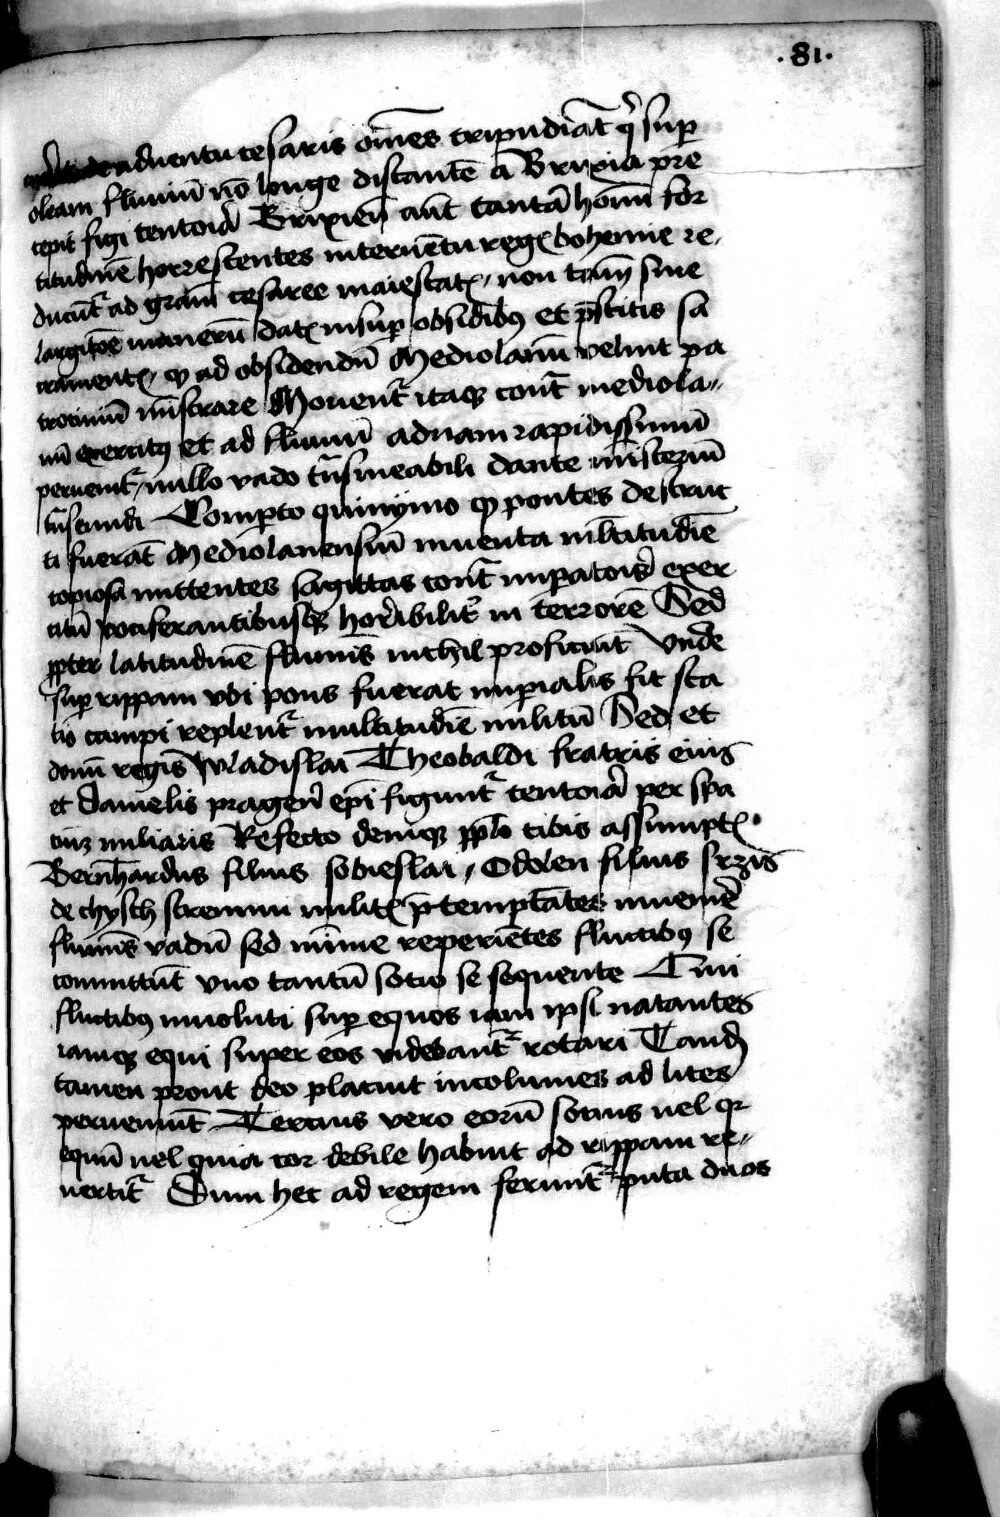 .81.
de aduentu cesaris om̄es tripudiāt q̇ sup
oleam fluuiū nō longe distantē a Brixia pre
cepit figi tentoia Brixien̄ aūt tantā hoīm for
titudinē horrescentes interuētu regꝭ bohemie re,
ducūt᷑ ad grām cesaree maiestatꝭ, non tamē siue
largitōe munerū datꝭ insup obsidibꝰ et p̄stitis sa
cramentꝭ, ꝙ ad obsidendū Mediolanū velint pa
trociniū mīstrare Mouent᷑ itaqꝫ cont᷑ mediola„
nū exercitꝰ et ad fluuiū aduam rapidissimū
perueniūt᷑, nullo vado tn̄smeabili dante misteriū
tn̄seundi Comperto quinymo ꝙ pontes destruc
ti fuerāt Mediolanensiū inuenta mltitudīe
copiosa mittentes sagittas cont᷑ imperatoris exer
citū vociferantibusqꝫ horribilit᷑ in terrorē Sed
ꝓpter latitudinē fluminis nichil proficiūt Vnde
sup rippam vbi pons fuerat imperialis fit sta
tio campi replent᷑ multitudīe militū Sed et
domī regis Wladislai Theobaldi fratris eius
et Danielis pragen̄ epī figunt᷑ tentoia per spa
ciū miliaris Refecto deniqꝫ pplo cibis assumptꝭ
Bernhardus filius sobieslai, Odolen filius srzis
de chysch strenuui militꝭ p̄temptātes inuenire
fluminis vadū sed mīme reperiētes fluctibꝰ se
committūt vno tantū sotio se sequente Cui
fluctibꝰ inuoluti sup equos iam ipsi natantes
iamqꝫ equi super eos videbant᷑ rotari Tandē
tamen prout deo placuit incolumes ad lites
perueniūt Tercius vero eorū sotius vel qꝛ
equū vel quia cor debile habuit ad rippam re„
uertit᷑ Dum hec ad regem ferunt᷑ puta duos